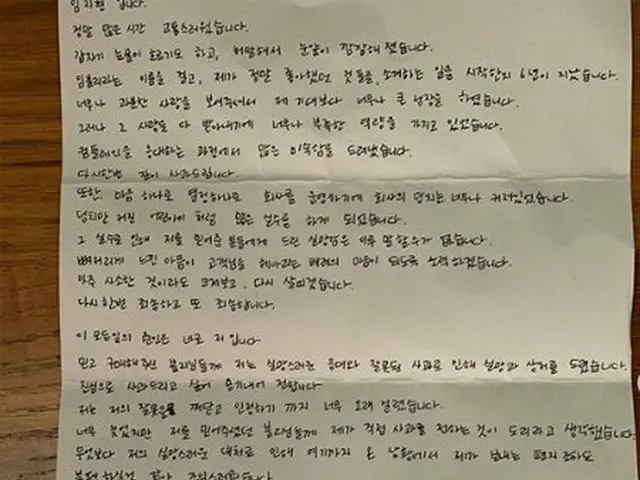 임지현 입니다.
정말 많은 시간 고통스러웠습니다.
갑자기 눈물이 흐르기도 하고, 허탈해서 눈앞이 깜깜해 졌습니다.
임블리라는 이름을 걸고, 제가 정말 좋아했던 것들을, 소개하는 일을 시작한지 6년이 지났습니다.
너무나 과분한 사랑을 보여주셔서 제 기대보다 너무나 큰 성장을 하였습니다.
그러나 그 사랑을 다 받아내기에 너무나 부족한 역량을 가지고 있었습니다.
컴플레인을 응대하는 과정에서 많은 미숙함을 드러냈습니다.
다시한번 깊이 사과드립니다.
또한, 마음 하나로 열정하나로 회사를 운영하기에 회사의 덩치는 너무나 커져있었습니다.
덩치만 커진 어린아이 처럼 많은 실수를 하게 되었습니다.
그 실수로 인해 저를 믿어준 분들에게 드린 실망감은 이루 말할수가 없습니다.
뼈저리게 느낀 마음이 고객님을 헤아리는 배려의 마음이 되도록 노력하겠습니다.
아주 사소한 것이라도 크게보고, 다시 살피겠습니다.
다시한번 죄송하고 또 죄송합니다.
이 모든일의 원인은 바로 저 입니다
믿고 구매해주신 블리님들께 저는 실망스러운 응대와 잘못된 사과로 인해 실망과 상처를 드렸습니다.
진심으로 사과드리고 싶어 용기내어 전합니다
저는 저의 잘못을 깨닫고 인정하기 까지 너무 오래 걸렸습니다.
너무 늦었지만 저를 믿어주셨던 블리님들께 제가 직접 사과를 전하는 것이 도리라고 생각했습니다.
무엇보다 저의 실망스러운 대처로 인해 여기까지 온 상황에서 제가 보내는 편지 조차도